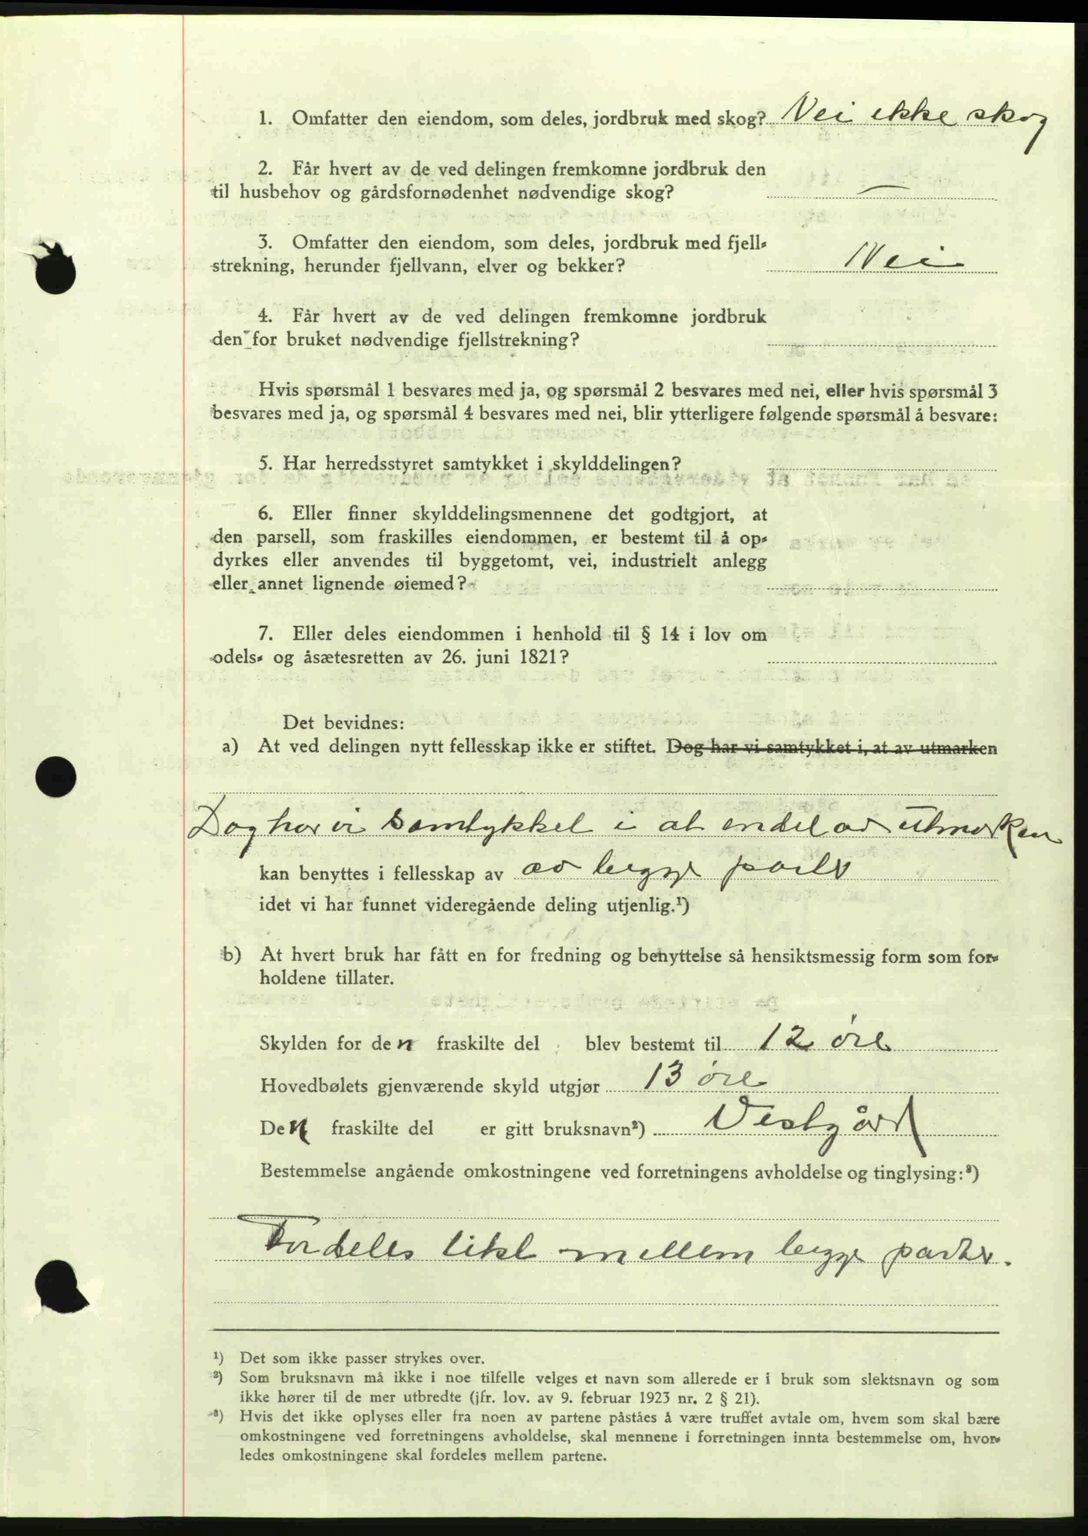 1. Omfatter den eiendom, som deles, jordbruk med skog? Nei ikke skog
2. Får hvert av de ved delingen fremkomne jordbruk den
til husbehov og gårdsfornødenhet nødvendige skog? —
3. Omfatter den eiendom, som deles, jordbruk med fjell-
strekning, herunder fjellvann, elver og bekker? Nei
4. Får hvert av de ved delingen fremkomne jordbruk
den for bruket nødvendige fjellstrekning?
Hvis spørsmål 1 besvares med ja, og spørsmål 2 besvares med nei, eller hvis spørsmål 3
besvares med ja, og spørsmål 4 besvares med nei, blir ytterligere følgende spørsmål å besvare:
5. Har herredsstyret samtykket i skylddelingen?
6. Eller finner skylddelingsmennene det godtgjort, at
den parsell, som fraskilles eiendommen, er bestemt til å op-
dyrkes eller anvendes til byggetomt, vei, industrielt anlegg
eller annet lignende øiemed?
7. Eller deles eiendommen i henhold til § 14 i lov om
odels- og åsætesretten av 26. juni 1821?
Det bevidnes:
a) At ved delingen nytt fellesskap ikke er stiftet. Dog har vi samtykket i, at av utmarken
Dog har vi samtykket i at endel av utmarken
kan benyttes i fellesskap av av begge parter
idet vi har funnet videregående deling utjenlig.¹)
b) At hvert bruk har fått en for fredning og benyttelse så hensiktsmessig form som for-
holdene tillater.
Skylden for den fraskilte del blev bestemt til 12 øre
Hovedbølets gjenværende skyld utgjør 13 øre
Den fraskilte del er gitt bruksnavn²) Vestgård
Bestemmelse angående omkostningene ved forretningens avholdelse og tinglysing:³)
Fordeles likt mellem begge parter.
¹) Det som ikke passer strykes over.
²) Som bruksnavn må ikke i noe tilfelle velges et navn som allerede er i bruk som slektsnavn og som
ikke hører til de mer utbredte (jfr. lov. av 9. februar 1923 nr. 2 § 21).
³) Hvis det ikke oplyses eller fra noen av partene påståes å være truffet avtale om, hvem som skal bære
omkostningene ved forretningens avholdelse, skal mennene i forretningen innta bestemmelse om, hvor-
ledes omkostningene skal fordeles mellem partene.